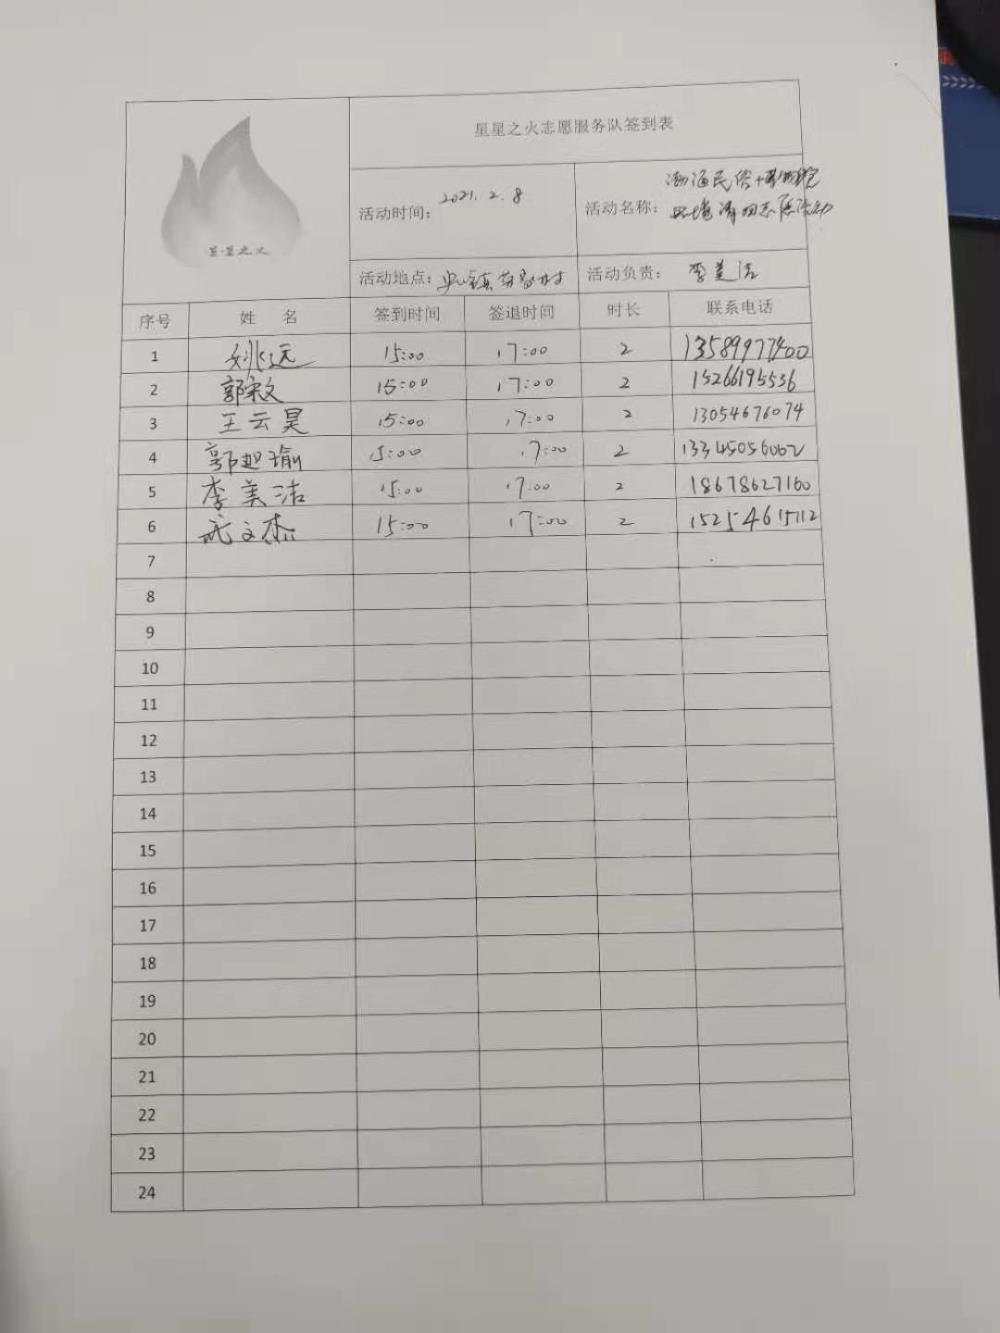 星星之火志愿服务队签到表
活动时间：2021.2.8
活动名称：渤海民俗
志愿活动
星·星之火
活动地点：
活动负责：李美洁
序号 姓 名 签到时间 签退时间 时长 联系电话
1 姚远 15:00 17:00 2 13589977400
2 郭 15:00 17:00 2 15266195536
3 王云昊 15:00 17:00 2 13054676074
4 郭 瑜 15:00 17:00 2 13345056062
5 李美洁 15:00 17:00 2 18678627160
6 武文杰 15:00 17:00 2 15254615112
7
8
9
10
11
12
13
14
15
16
17
18
19
20
21
22
23
24